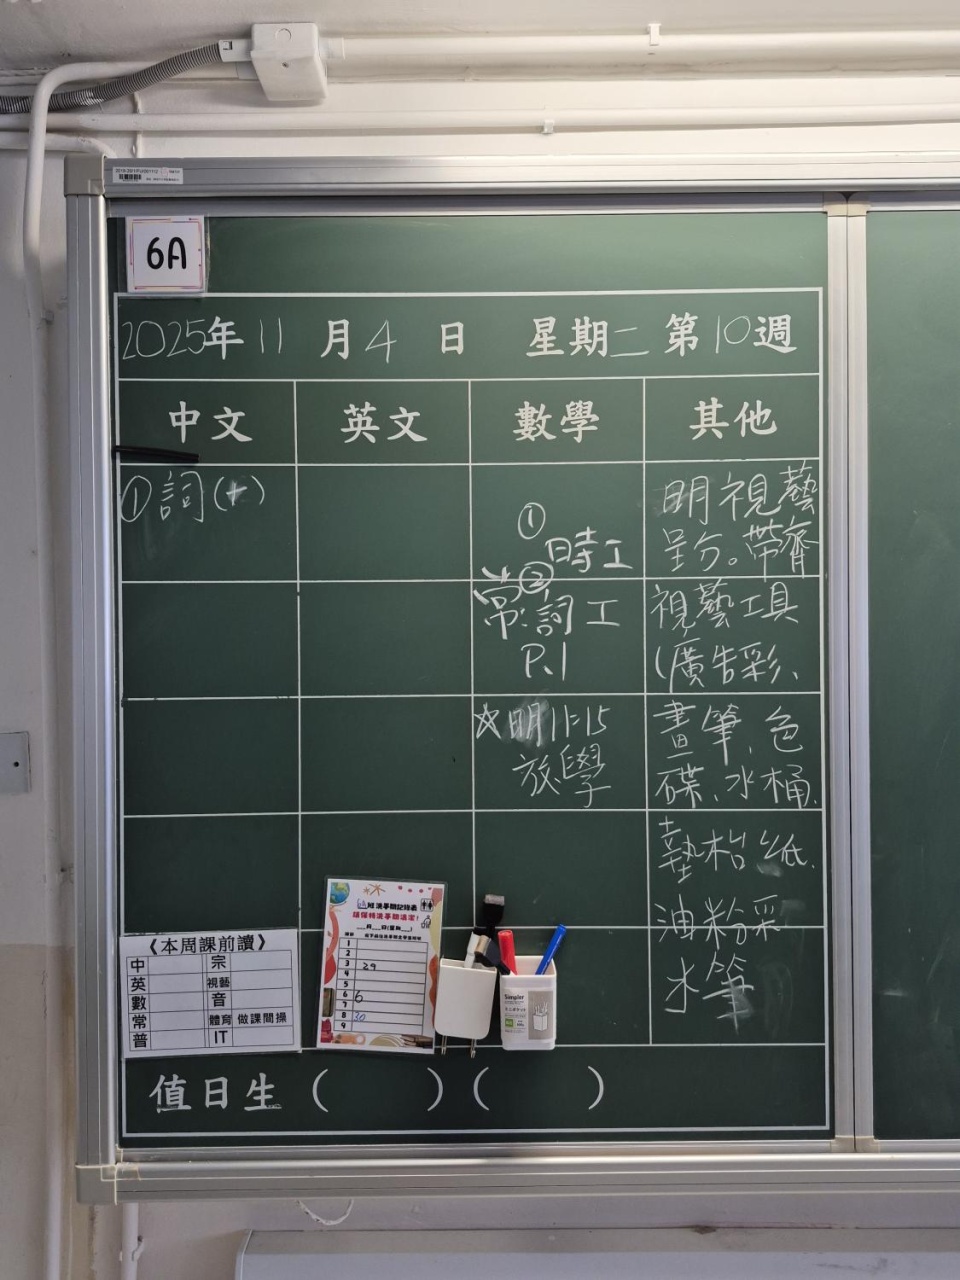 6A
2025年11月4日 星期二 第10週
中文 英文 數學 其他
①詞(十)
①
時工
②
常:詞工
P.1
☆明11:15
放學
明視藝
呈分。帶齊
視藝工具
(廣告彩、
畫筆、色
碟、水桶、
墊枱紙、
油粉彩
水筆
《本周課前讀》
中 宗
英 視藝
數 音
常 體育 做課間操
普 IT
1
2
3 29
4
5
6 6
7
8 30
9
Simpler
值日生 ( ) ( )